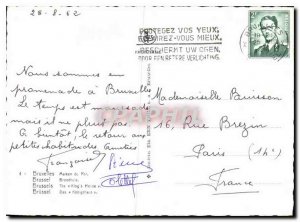 28-8-62
PROTEGEZ VOS YEUX,
ECLAIREZ-VOUS MIEUX.
BESCHERMT UW OGEN,
DOOR EEN BETERE VERLICHTING.
Nous sommes en
promenade à Bruxelles
Le temps est maussade
mais il ne pleut pas
A bientôt, le retour aux
petites habitudes. Amitiés
Françoise Pierre
Mademoiselle Buisson
16, Rue Brezin
Paris (14e)
France
Bruxelles Maison du Roi.
Brussel Broodhuis.
Brussels The «King's House»
Brüssel Das «Königshaus»